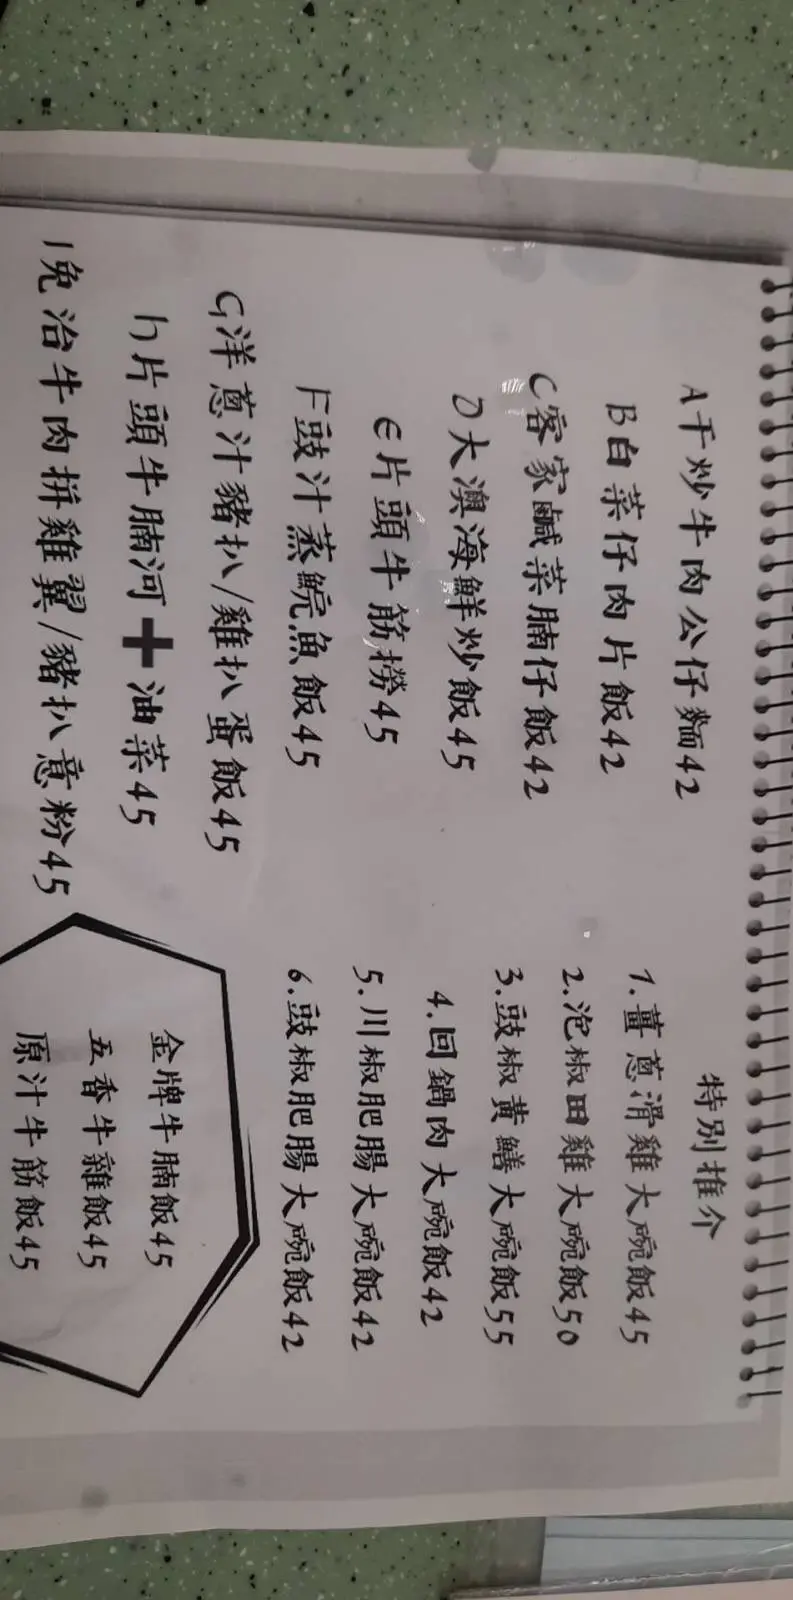 A干炒牛肉公仔麵42
B白菜仔肉片飯42
C客家鹹菜腩仔飯42
D大澳海鮮炒飯45
E片頭牛筋撈45
F豉汁蒸鯇魚飯45
G洋蔥汁豬扒/雞扒蛋飯45
h片頭牛腩河➕油菜45
I免治牛肉拼雞翼/豬扒意粉45
特別推介
1.薑蔥滑雞大碗飯45
2.泡椒田雞大碗飯50
3.豉椒黃鱔大碗飯55
4.回鍋肉大碗飯42
5.川椒肥腸大碗飯42
6.豉椒肥腸大碗飯42
金牌牛腩飯45
五香牛雜飯45
原汁牛筋飯45